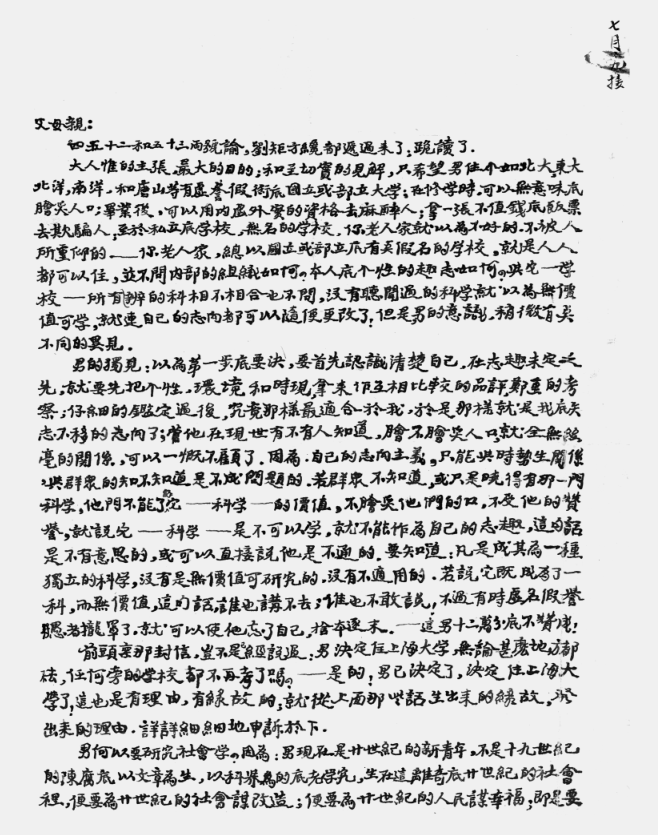 七月九接
父母親：
四五十二和五十三两號諭，劉矩才纔都遞過来了；跪讀了．
大人惟的主張、最大的目的；和至切實的見解，只希望男住个如北大，東大
北洋，南洋．和唐山等有虚譽假銜底國立或部立大學；在修学時，可以無意味底
膾炙人口；畢業後，可以用内虚外實的資格去麻醉人；拿一張不值錢底飯票
去欺騙人；至於私立底学校，無名的学校，你老人家就以為不好的．不被人
所重仰的．——你老人家，總以國立或部立底有美假名的学校，就是人人
都可以住，並不問内部的組織如何。本人底个性的趣志如何。與它一学
校——所有辦的科相不相合也不問，没有聽聞過的科学就以為無價
值可学，就連自己的志向都可以隨便更改了！但是男的意識，稍微有美
不同的異見．
男的獨見：以為第一步底要决，要首先認識清楚自己，在志趣未定之
先，就要先把个性．環境和時現，拿来作互相比較的品評鄭重的考
察；仔細的鑑定過後，究竟那樣最適合於我，於是那樣就是我底矢
志不移的志向了；管他在現世有不有人知道，膾不膾炙人口，就全無絲
毫的關係，可以一慨不顧了．因為．自己的志向主義。只能與時勢生關係
：與群衆的知不知道是不成問題的．若群衆不知道，或只是曉得有那一門
科学，他們不能了它——科学——的價值，不膾炙他們的口，不受他的贊
譽，就説它——科学——是不可以学，就不能作為自己的志趣，這的話
是不有意思的，或可以直接説他是不通的．要知道：凡是成其為一種
獨立的科学，没有是無價值可研究的．没有不適用的．若説它既成為了一
科，而無價值，這的話，誰也講不去；誰也不敢説，不過有時虚名假譽
聰者攏罩了．就可以使他忘了自己，捨本逐末．——這男十二萬分底不贊成！
前頭稟那封信，豈不是經説過：男决定住上海大学，無論甚麽地方都
祛，任何旁的学校都不再考了嗎。——是的！男已决定了，决定住上海大
學了！這也是有理由，有緣故的，就從上面那些話生出来的緣故，發
出来的理由．詳詳細細地申訴於下．
男何以要研究社會学。因為：男現在是廿世紀的新青年，不是十九世紀
的陳腐底以文章為生，以科舉為的底老学究，生在這離奇底廿世紀的社會
裡，便要為廿世紀的社會謀改造；便要為廿世紀的人民謀幸福；即是要